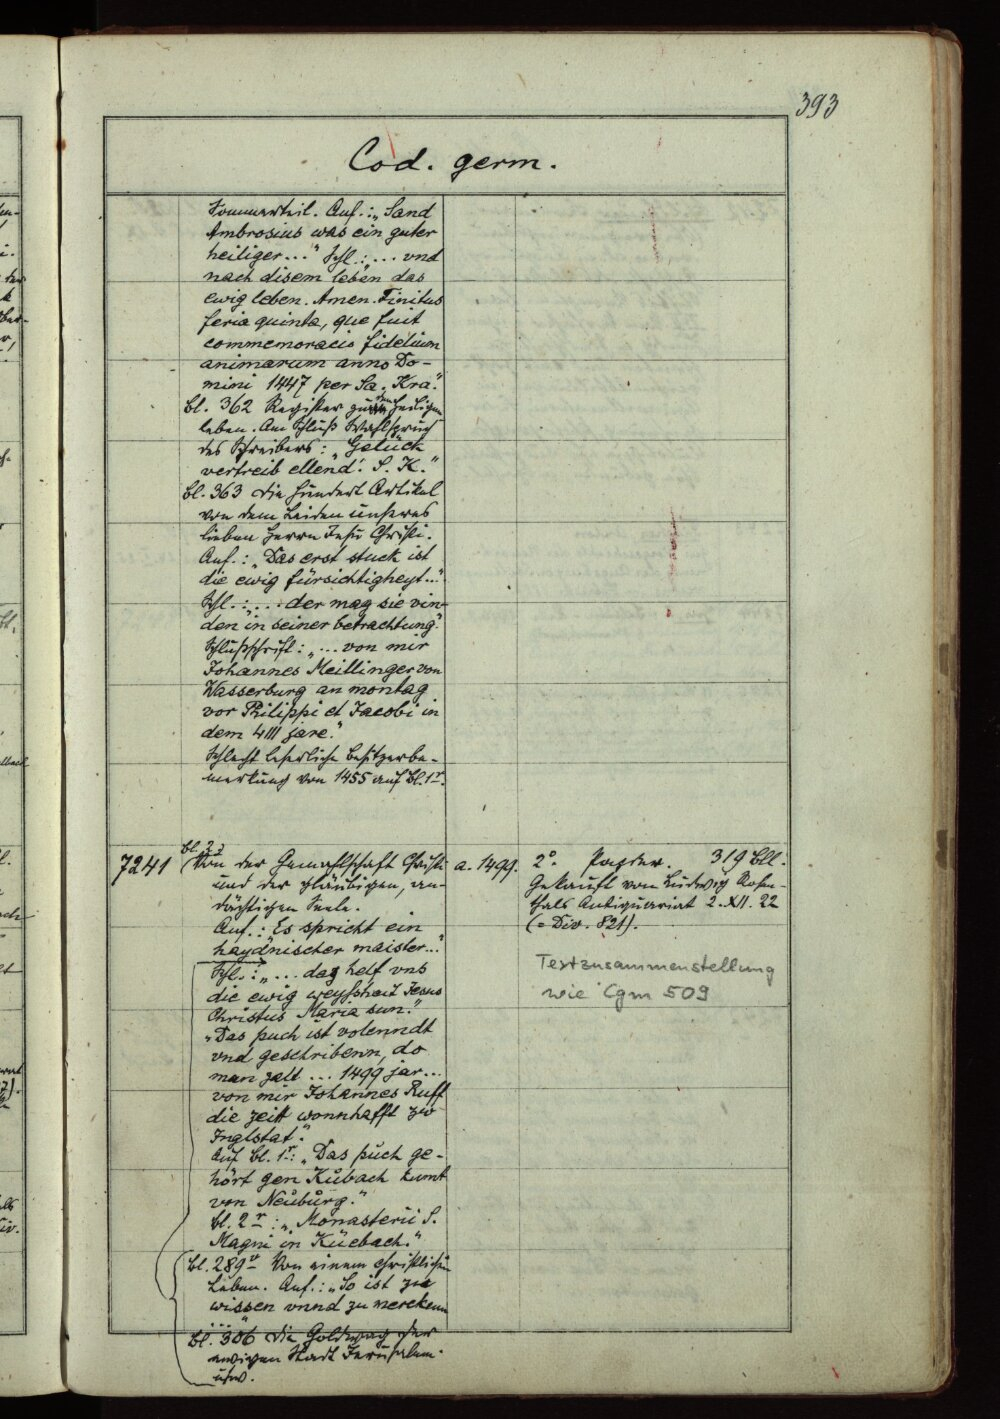 393
Cod. germ.
Sommerteil. Anf.: „Sand
Ambrosius was ein guter
heiliger..." Schl.: „... vnd
nach disem leben das
ewig leben. Amen. Finitus
feria quinta, que fuit
commemoracio fidelium
animarum anno Do-
mini 1447 per Sa. Kra."
Bl. 362 Register zu den Heiligen
leben. Am Schluß Wahlspruch
des Schreibers: „Gelück
vertreib ellend. S. K."
Bl. 363 Die hundert Artikel
von dem Leiden unseres
lieben Herrn Jesu Christi.
Anf.: „Das erst stuck ist
die ewig fürsichtigheyt..."
Schl.: „... der mag sie vin-
den in seiner betrachtung."
Schlußschrift: „... von mir
Johannes Meitlinger von
Wasserburg an montag
vor Philippi et Jacobi in
dem 4III jare."
Schlecht leserliche Besitzerbe-
merkung von 1455 auf Bl. 1r.
7241
Bl. 2
Von der Gemahlschaft Christi
und der gläubigen, an-
dächtigen Seele.
Anf.: „Es spricht ein
haydnischer maister..."
Schl.: „... daz helf vns
die ewig weyshait Jesus
Christus Maria sun."
„Das puch ist volenndt
vnd geschribenn, do
man zalt ... 1499 jar...
von mir Johannes Ruff
die zeitt wonnhafft zw
Inglstat."
Auf Bl. 1r: „Das puch ge-
hört gen Kübach kumt
von Neuburg."
Bl. 2r: „Monasterii S.
Magni in Küebach."
Bl. 289v Von einem christlichen
Leben. Anf.: „So ist zu
wissen vnnd zu merckenn
..."
Bl. 306 Die Goldwag der
ewigen Stadt Jerusalem.
usw.
a. 1499.
2°. Papier. 319 Bll.
Gekauft von Ludwig Rosen-
thals Antiquariat 2.XII.22
(= Div. 821).
Textzusammenstellung
wie Cgm 509